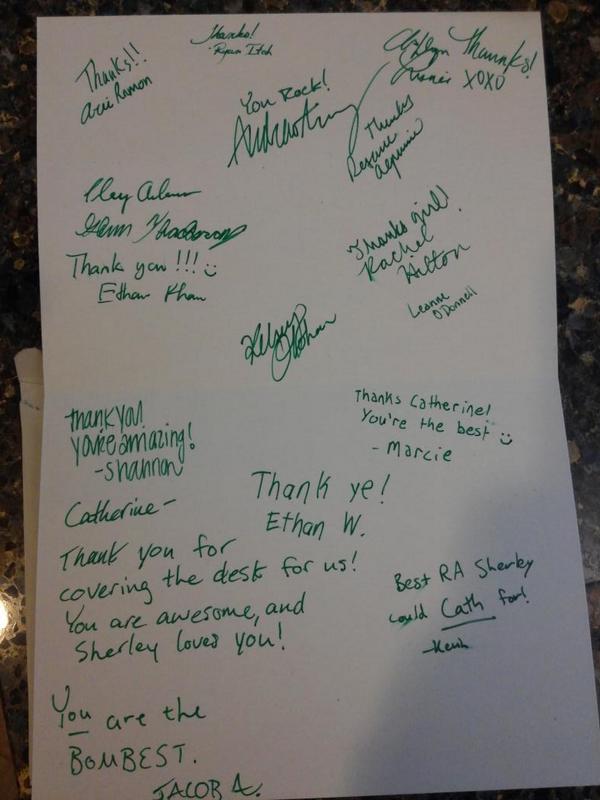 Thanks!
Ryan
Thanks!!
Thaunks!
XOXO
You Rock!
Thanks
Thank you!!!
Ethan Khan
Thanks girl!
Rachel
Hilton
Leanne
O'Donnell
Kelsey
Thanks Catherine!
You're the best
- Marcie
thank you!
you're amazing!
-Shannon
Thank ye!
Ethan W.
Catherine-
Thank you for
covering the desk for us!
You are awesome, and
Sherley loves you!
Best RA Sherley
could Cath for!
You are the
BOMBEST.
JACOB A.